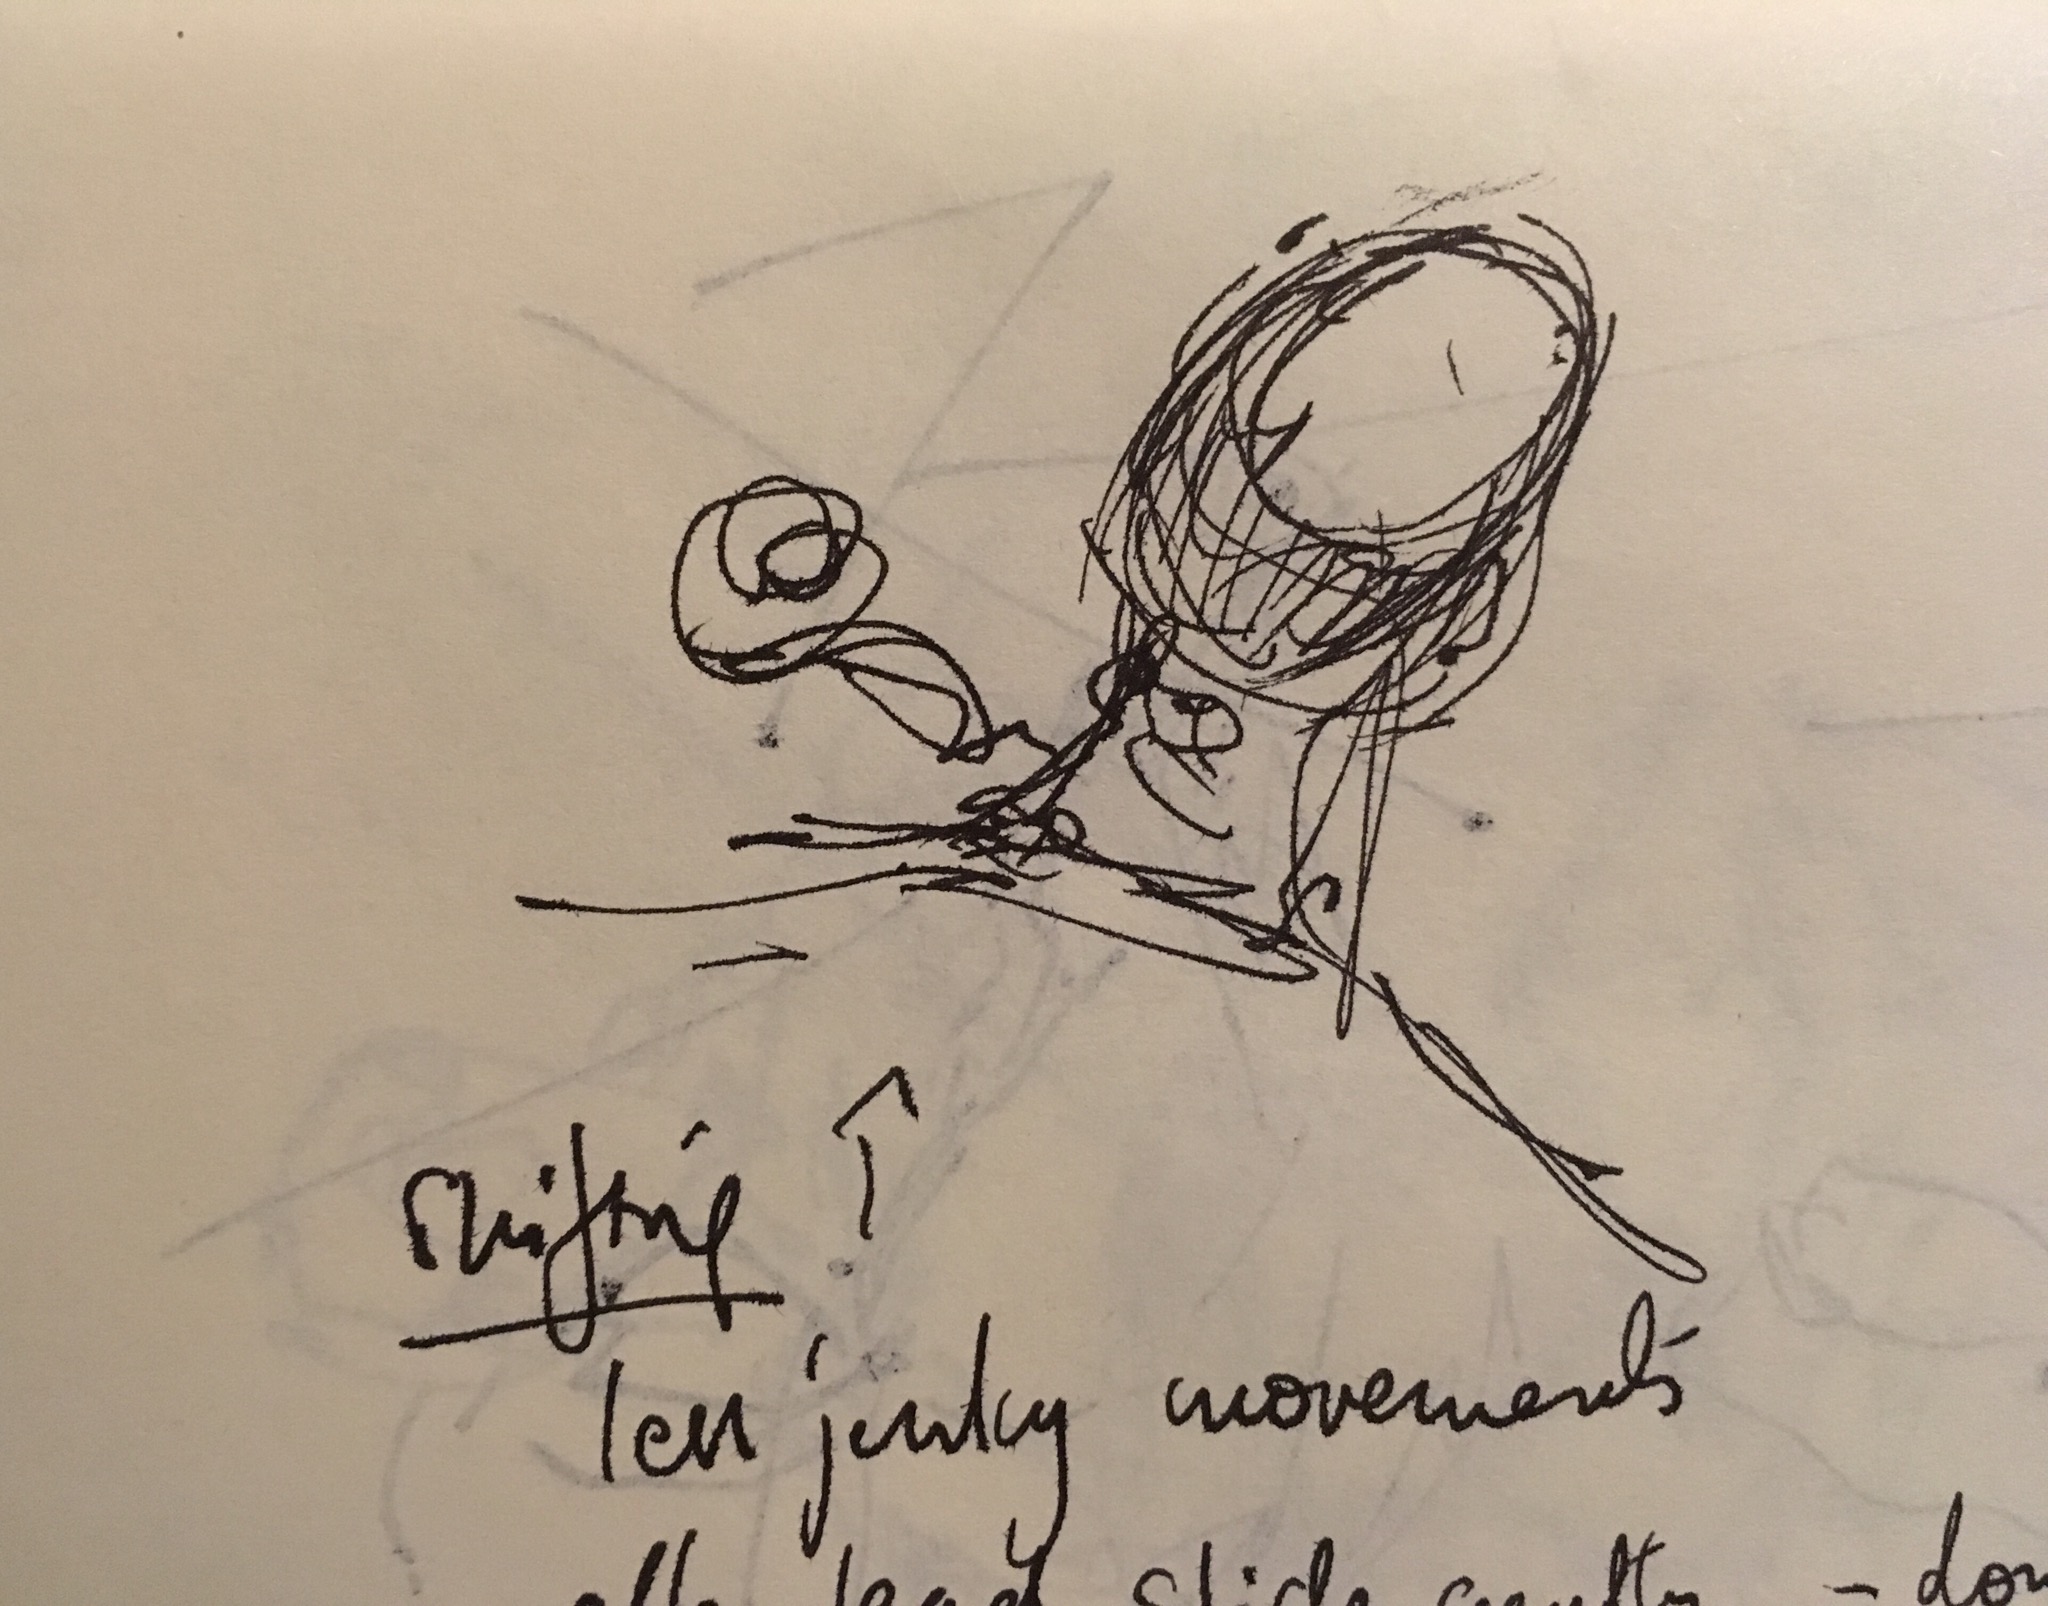 Shifting ↑
less jerky movements
slide gently –